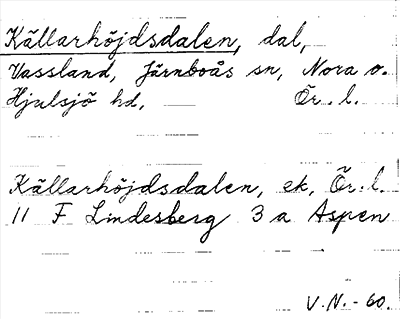 Källarhöjdsdalen, dal,
Vassland, Järnboås sn, Nora o.
Hjulsjö hd. Ör. l.
Källarhöjdsdalen, ek, Ör. l.
11 F Lindesberg 3 a Aspen
V.N. - 60.